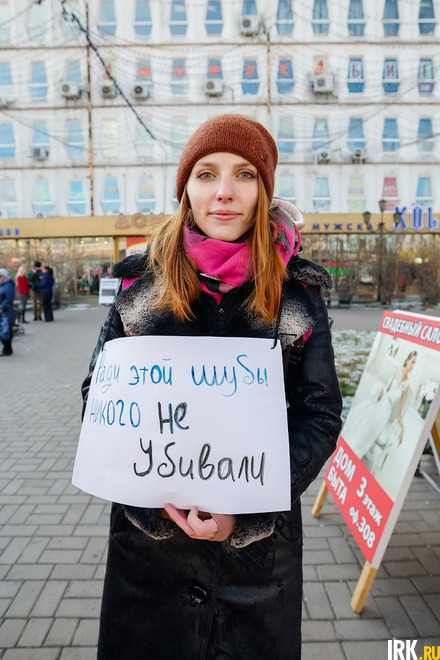 ДОМ
МУЖСКАЯ
Ради этой шубы
никого не
убивали
СВАДЕБНЫЙ САЛОН
ДОМ 3 этаж
БЫТА оф.308
IRK.RU